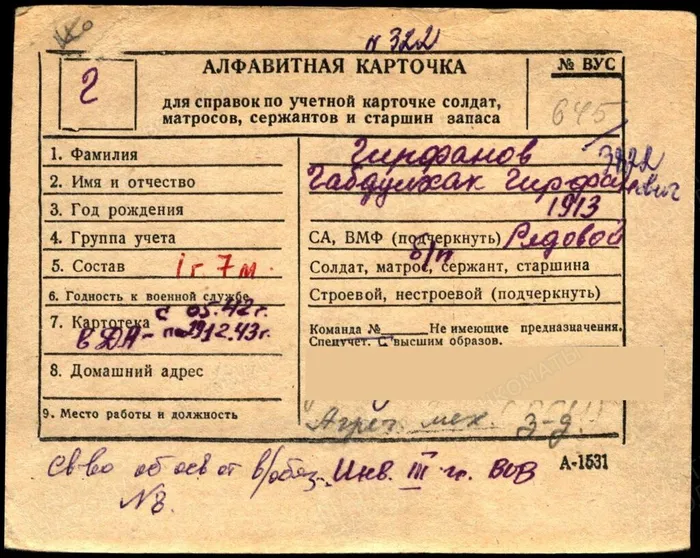 № 322
Г
АЛФАВИТНАЯ КАРТОЧКА
№ ВУС
для справок по учетной карточке солдат,
матросов, сержантов и старшин запаса
645
1. Фамилия
Гирфанов
3222
2. Имя и отчество
Габдулхак Гирфанович
3. Год рождения
1913
4. Группа учета
СА, ВМФ (подчеркнуть) Рядовой
5. Состав
1 г 7 м.
б/п
Солдат, матрос, сержант, старшина
6. Годность к военной службе
Строевой, нестроевой (подчеркнуть)
7. Картотека
с 05.42 г.
в ДА - по 1912.43 г.
Команда № Не имеющие предназначения.
Спецучет. С высшим образов.
8. Домашний адрес
9. Место работы и должность
Агрег мех. з-д.
А-1531
Св-во об осв от в/обяз. Инв. III гр. ВОВ
№